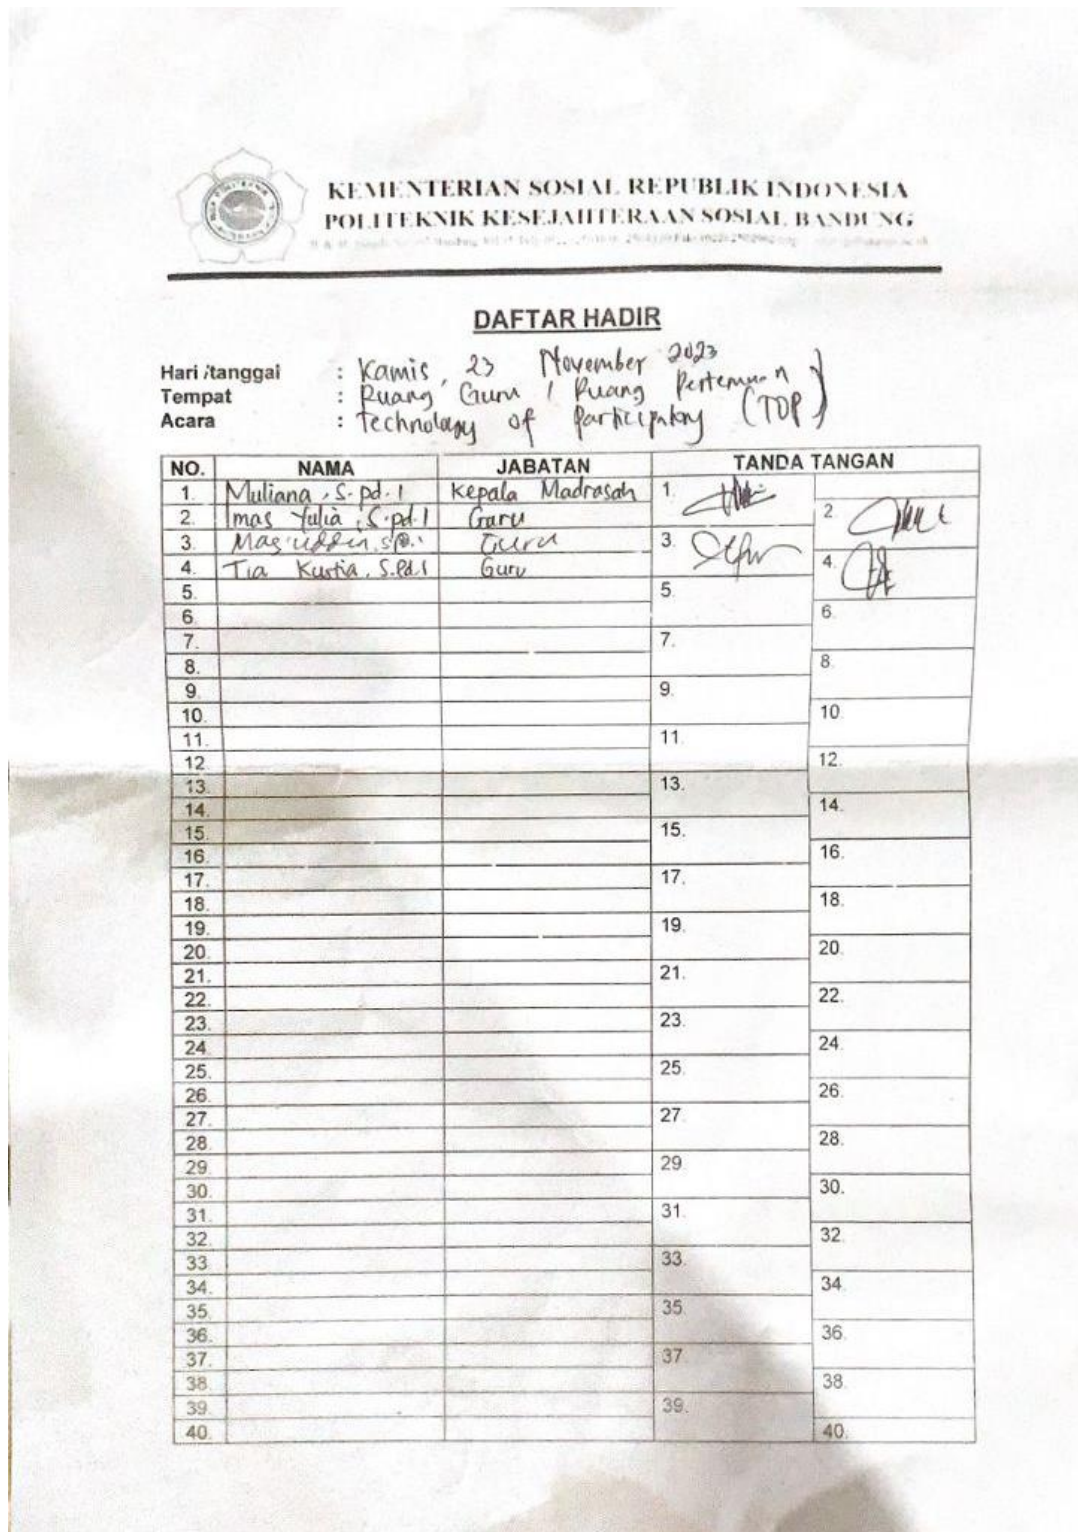 KEMENTERIAN SOSIAL REPUBLIK INDONESIA
POLITEKNIK KESEJAHTERAAN SOSIAL BANDUNG
DAFTAR HADIR
Hari /tanggal : Kamis, 23 November 2023
Tempat : Ruang Guru / Ruang Pertemuan
Acara : Technology of Participatory (TOP)
NO. NAMA JABATAN TANDA TANGAN
1. Muliana, S.pd.I Kepala Madrasah 1.
2. Imas Yulia, S.pd.I Guru 2.
3. Guru 3.
4. Tia Kustia, S.Pd.I Guru 4.
5. 5.
6. 6.
7. 7.
8. 8.
9. 9.
10. 10.
11. 11.
12. 12.
13. 13.
14. 14.
15. 15.
16. 16.
17. 17.
18. 18.
19. 19.
20. 20.
21. 21.
22. 22.
23. 23.
24. 24.
25. 25.
26. 26.
27. 27.
28. 28.
29. 29.
30. 30.
31. 31.
32. 32.
33. 33.
34. 34.
35. 35.
36. 36.
37. 37.
38. 38.
39. 39.
40. 40.